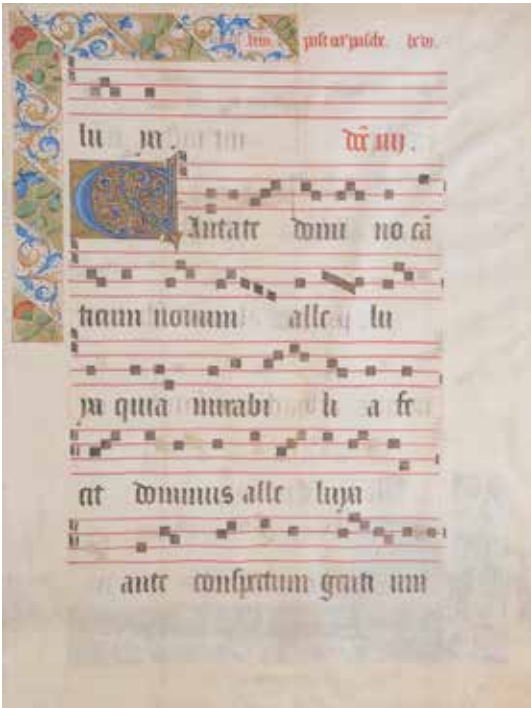 post oct' pasche.
lu ya.
Cantate domi no cā
ticum nouum alle lu
ya quia mirabi li a fe
cit dominus alle luya
ante conspectum genti um